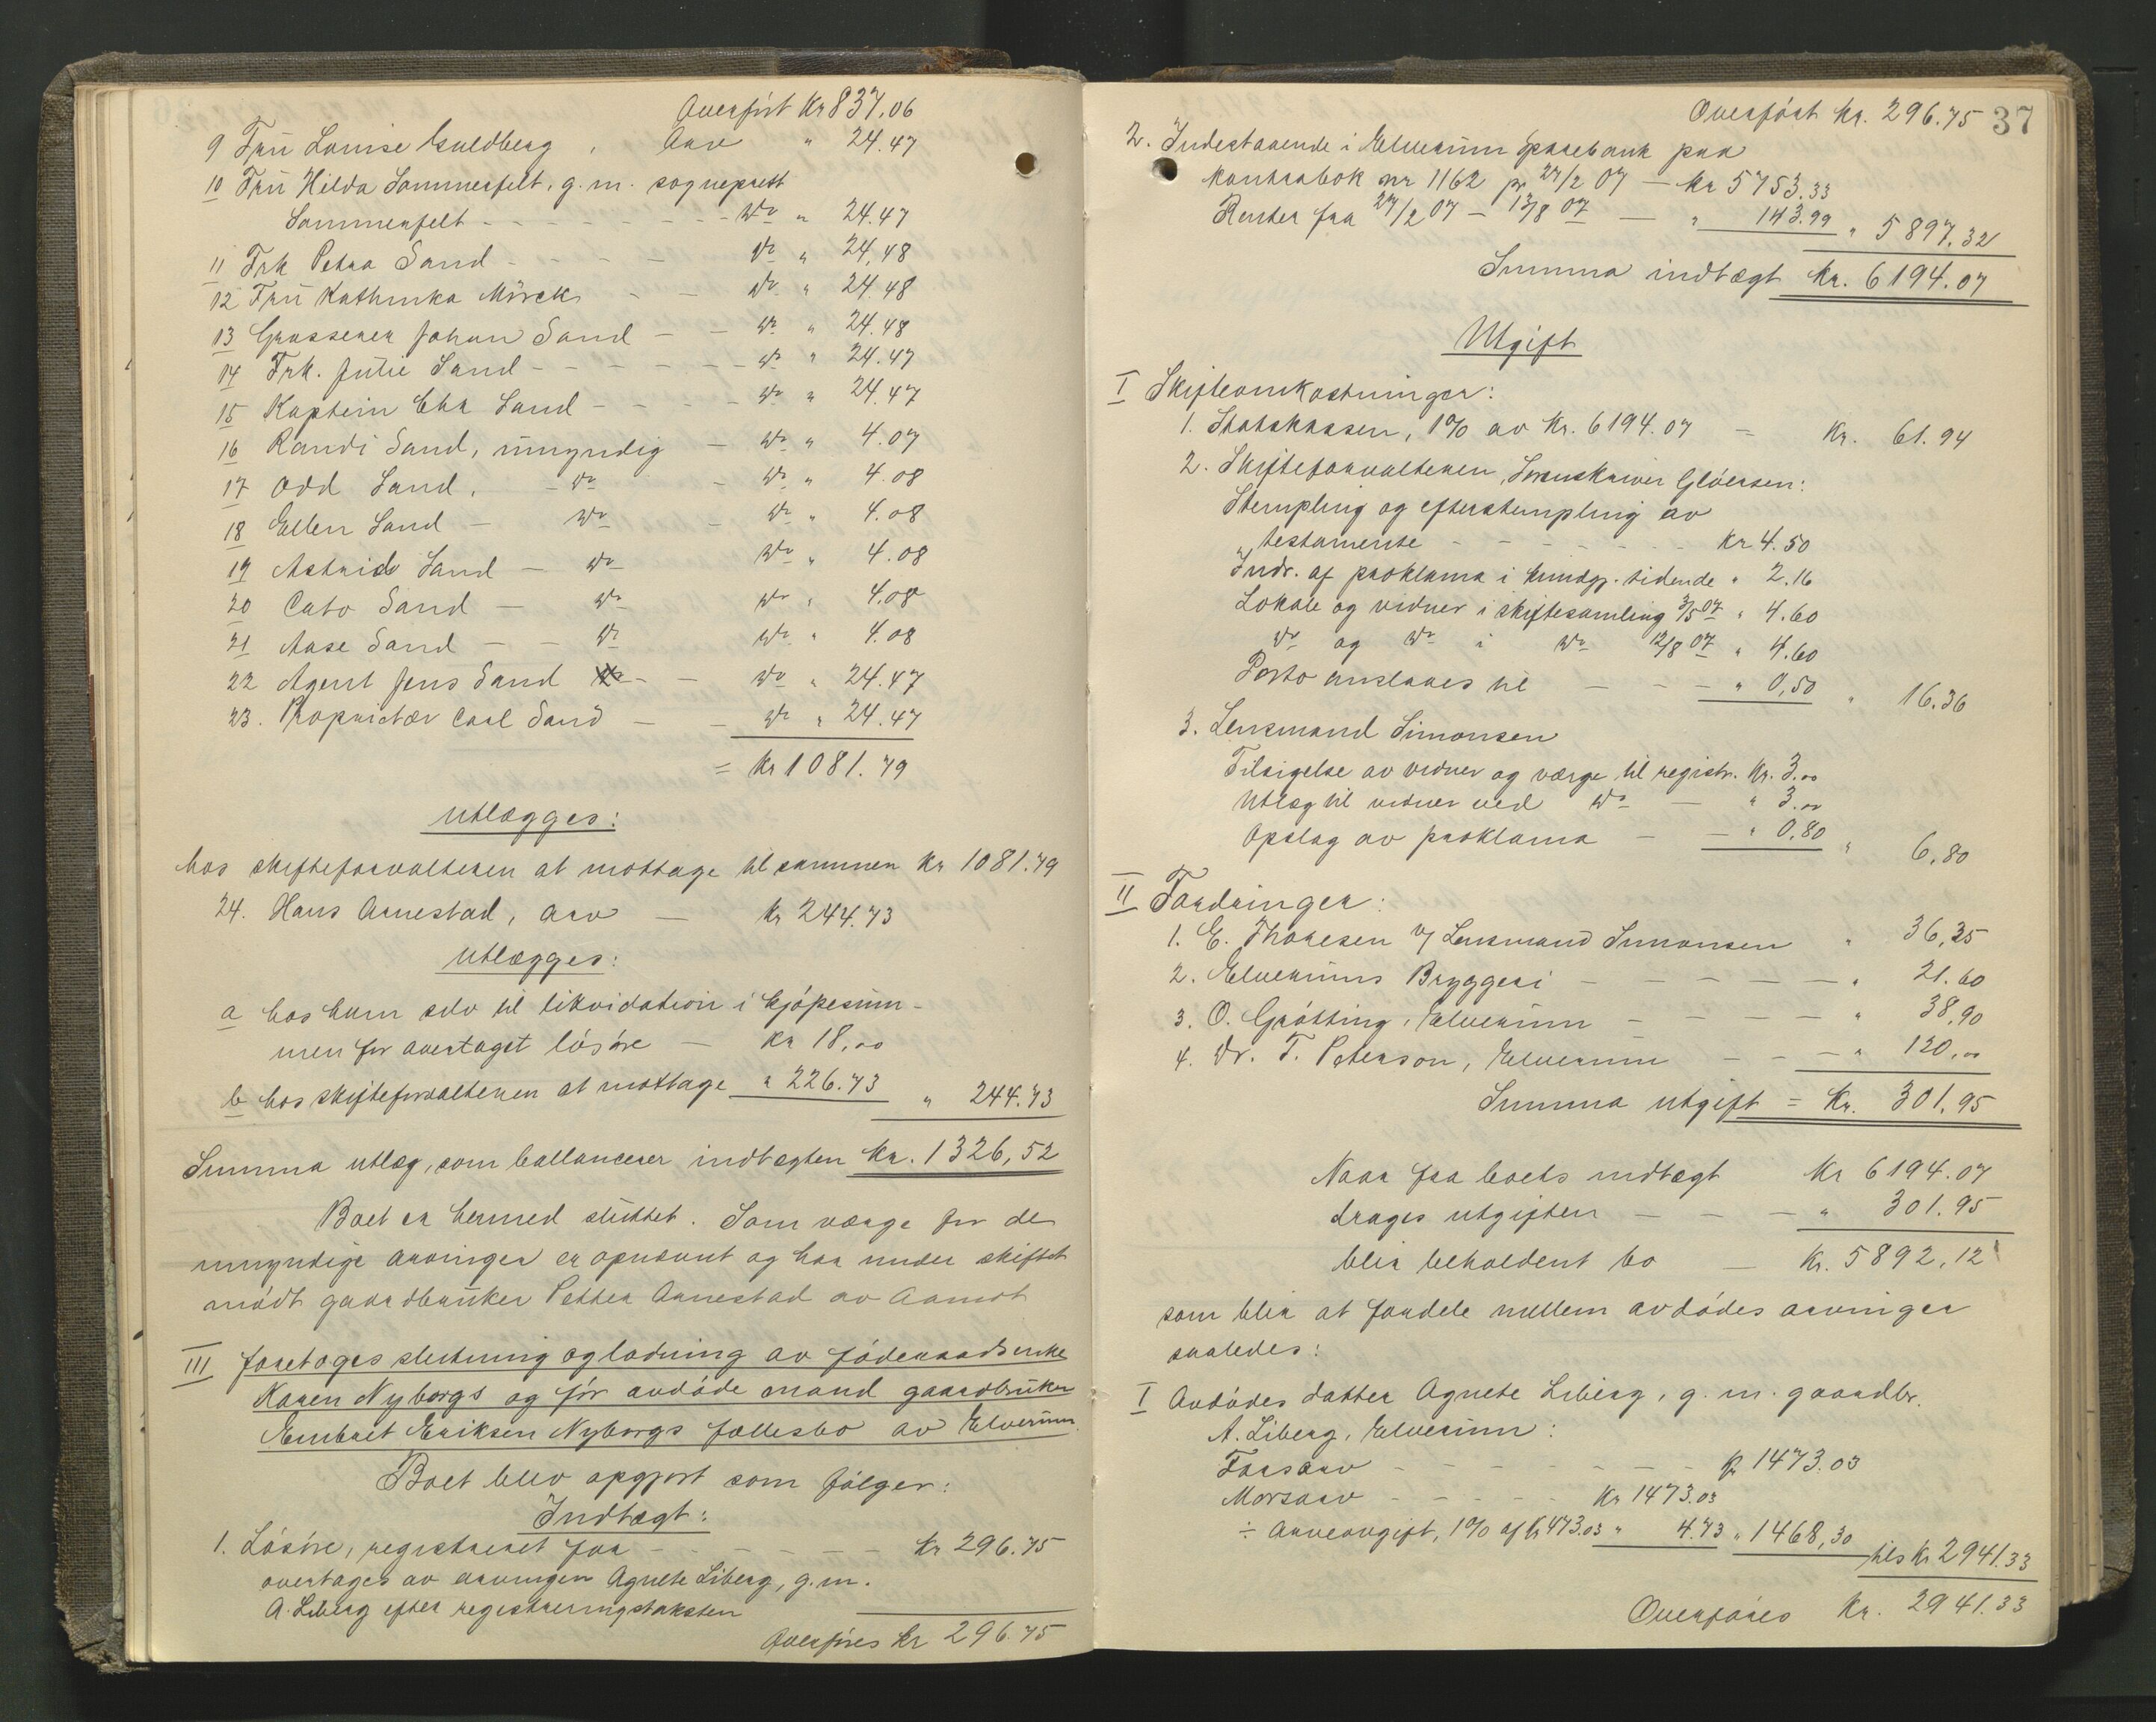 Overført Kr 837.06
9 Fru Louise Guldberg, Arv " 24.47
10 Fru Hilda Sommerfelt, g.m. sogneprest
Sommerfelt - - - - - - do " 24.47
11 Frk Petra Sand - - - - do " 24,48
12 Fru Kathinka Mörck - - do " 24.48
13 Grosserer Johan Sand - - do " 24.48
14 Frk. Julie Sand - - - - - - do " 24.47
15 Kaptein Chr Sand - - - - do " 24.47
16 Randi Sand, umyndig - do " 4.07
17 Odd Sand, - do - do " 4.08
18 Ellen Sand - do - do " 4.08
19 Astrid Sand - do do " 4.08
20 Cato Sand - do do " 4,08
21 Aase Sand - - do do " 4.08
22 Agent Jens Sand - - do " 24.47
23. Proprietær Carl Sand - - do " 24.47
= Kr 1081.79
utlægges:
hos skifteforvalteren at mottage tilsammen Kr 1081.79
24. Hans Arnestad, arv - Kr 244.73
utlægges:
a hos ham selv til likvidation i kjøpesum-
men for overtaget løsøre - Kr 18,00
b hos skifteforvalteren at mottage " 226.73 " 244.73
Summa utlæg, som ballancerer indtægten Kr. 1326,52
Boet er hermed sluttet. Som værge for de
umyndige arvinger er opnævnt og har under skiftet
mødt gaardbruker Petter Arnestad av Aamot
III foretoges slutning og lodning av føderaadsenke
Karen Nyborgs og før avdøde mand gaardbruker
Embret Eriksen Nyborgs fællesbo av Elverum.
Boet blev opgjort som følger:
Indtægt:
1. Løsøre, registreret for - - - - - - Kr 296.75
overtages av arvingen Agnete Liberg, g.m.
A. Liberg efter registreringstaksten
Overføres Kr 296.75
Overført Kr. 296.75 37
2. Indestaaende i Elverum Sparebank paa
kontrabok nr 1162 pr 27/2 07 - Kr 5753.33
Renter fra 27/2 07 - 13/8 07 - " 143.99 " 5897,32
Summa indtægt Kr. 6194.07
Utgift
I Skifteomkostninger:
1. Statskassen, 1% av Kr. 6194.07 = Kr. 61.94
2. Skifteforvalteren, Sorenskriver Gløersen:
Stempling og efterstempling av
testamente - - - - - - - Kr 4.50
Indr. af proklama i kundgj. tidende " 2.16
Lokale og vidner i skiftesamling 3/5 07 " 4.60
do og do i do 12/8 07 " 4.60
Porto anslaaes til - - - " 0,50 " 16.36
3. Lensmand Simonsen
Tilsigelse av vidner og værge til registr. Kr. 3.00
Utlæg til vidner ved do - " 3.00
Opslag av proklama - - " 0,80 " 6,80
II Fordringer:
1. E. Thoresen v/ Lensmand Simonsen " 36,35
2. Elverums Bryggeri - - - - - " 21.60
3. O. Grøtting, Elverum - - - - " 38,90
4. Dr. T. Peterson, Elverum - - - " 120,00
Summa utgift = Kr. 301,95
Naar fra boets indtægt Kr 6194.07
drages utgiften - - - " 301.95
blir beholdent bo - Kr. 5892,12
som blir at fordele mellem avdødes arvinger
saaledes:
I Avdødes datter Agnete Liberg, g.m. gaardbr.
A. Liberg, Elverum:
Farsarv - - - - - - - Kr 1473.03
Morsarv - - - - - Kr 1473.03
÷ Arveavgift, 1% af Kr 473.03 " 4.73 " 1468,30 tils Kr 2941.33
Overføres Kr. 2941.33